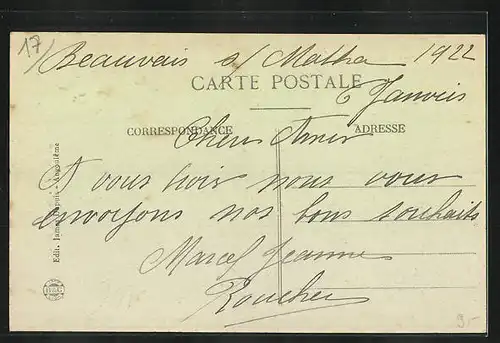 17
Beauvais s/ Matha 1922
CARTE POSTALE
6 Janvier
CORRESPONDANCE
ADRESSE
Chers Amis
A vous trois nous vous
envoyons nos bons souhaits
Marcel Jeanne
Roucher
Edit. Angoulême